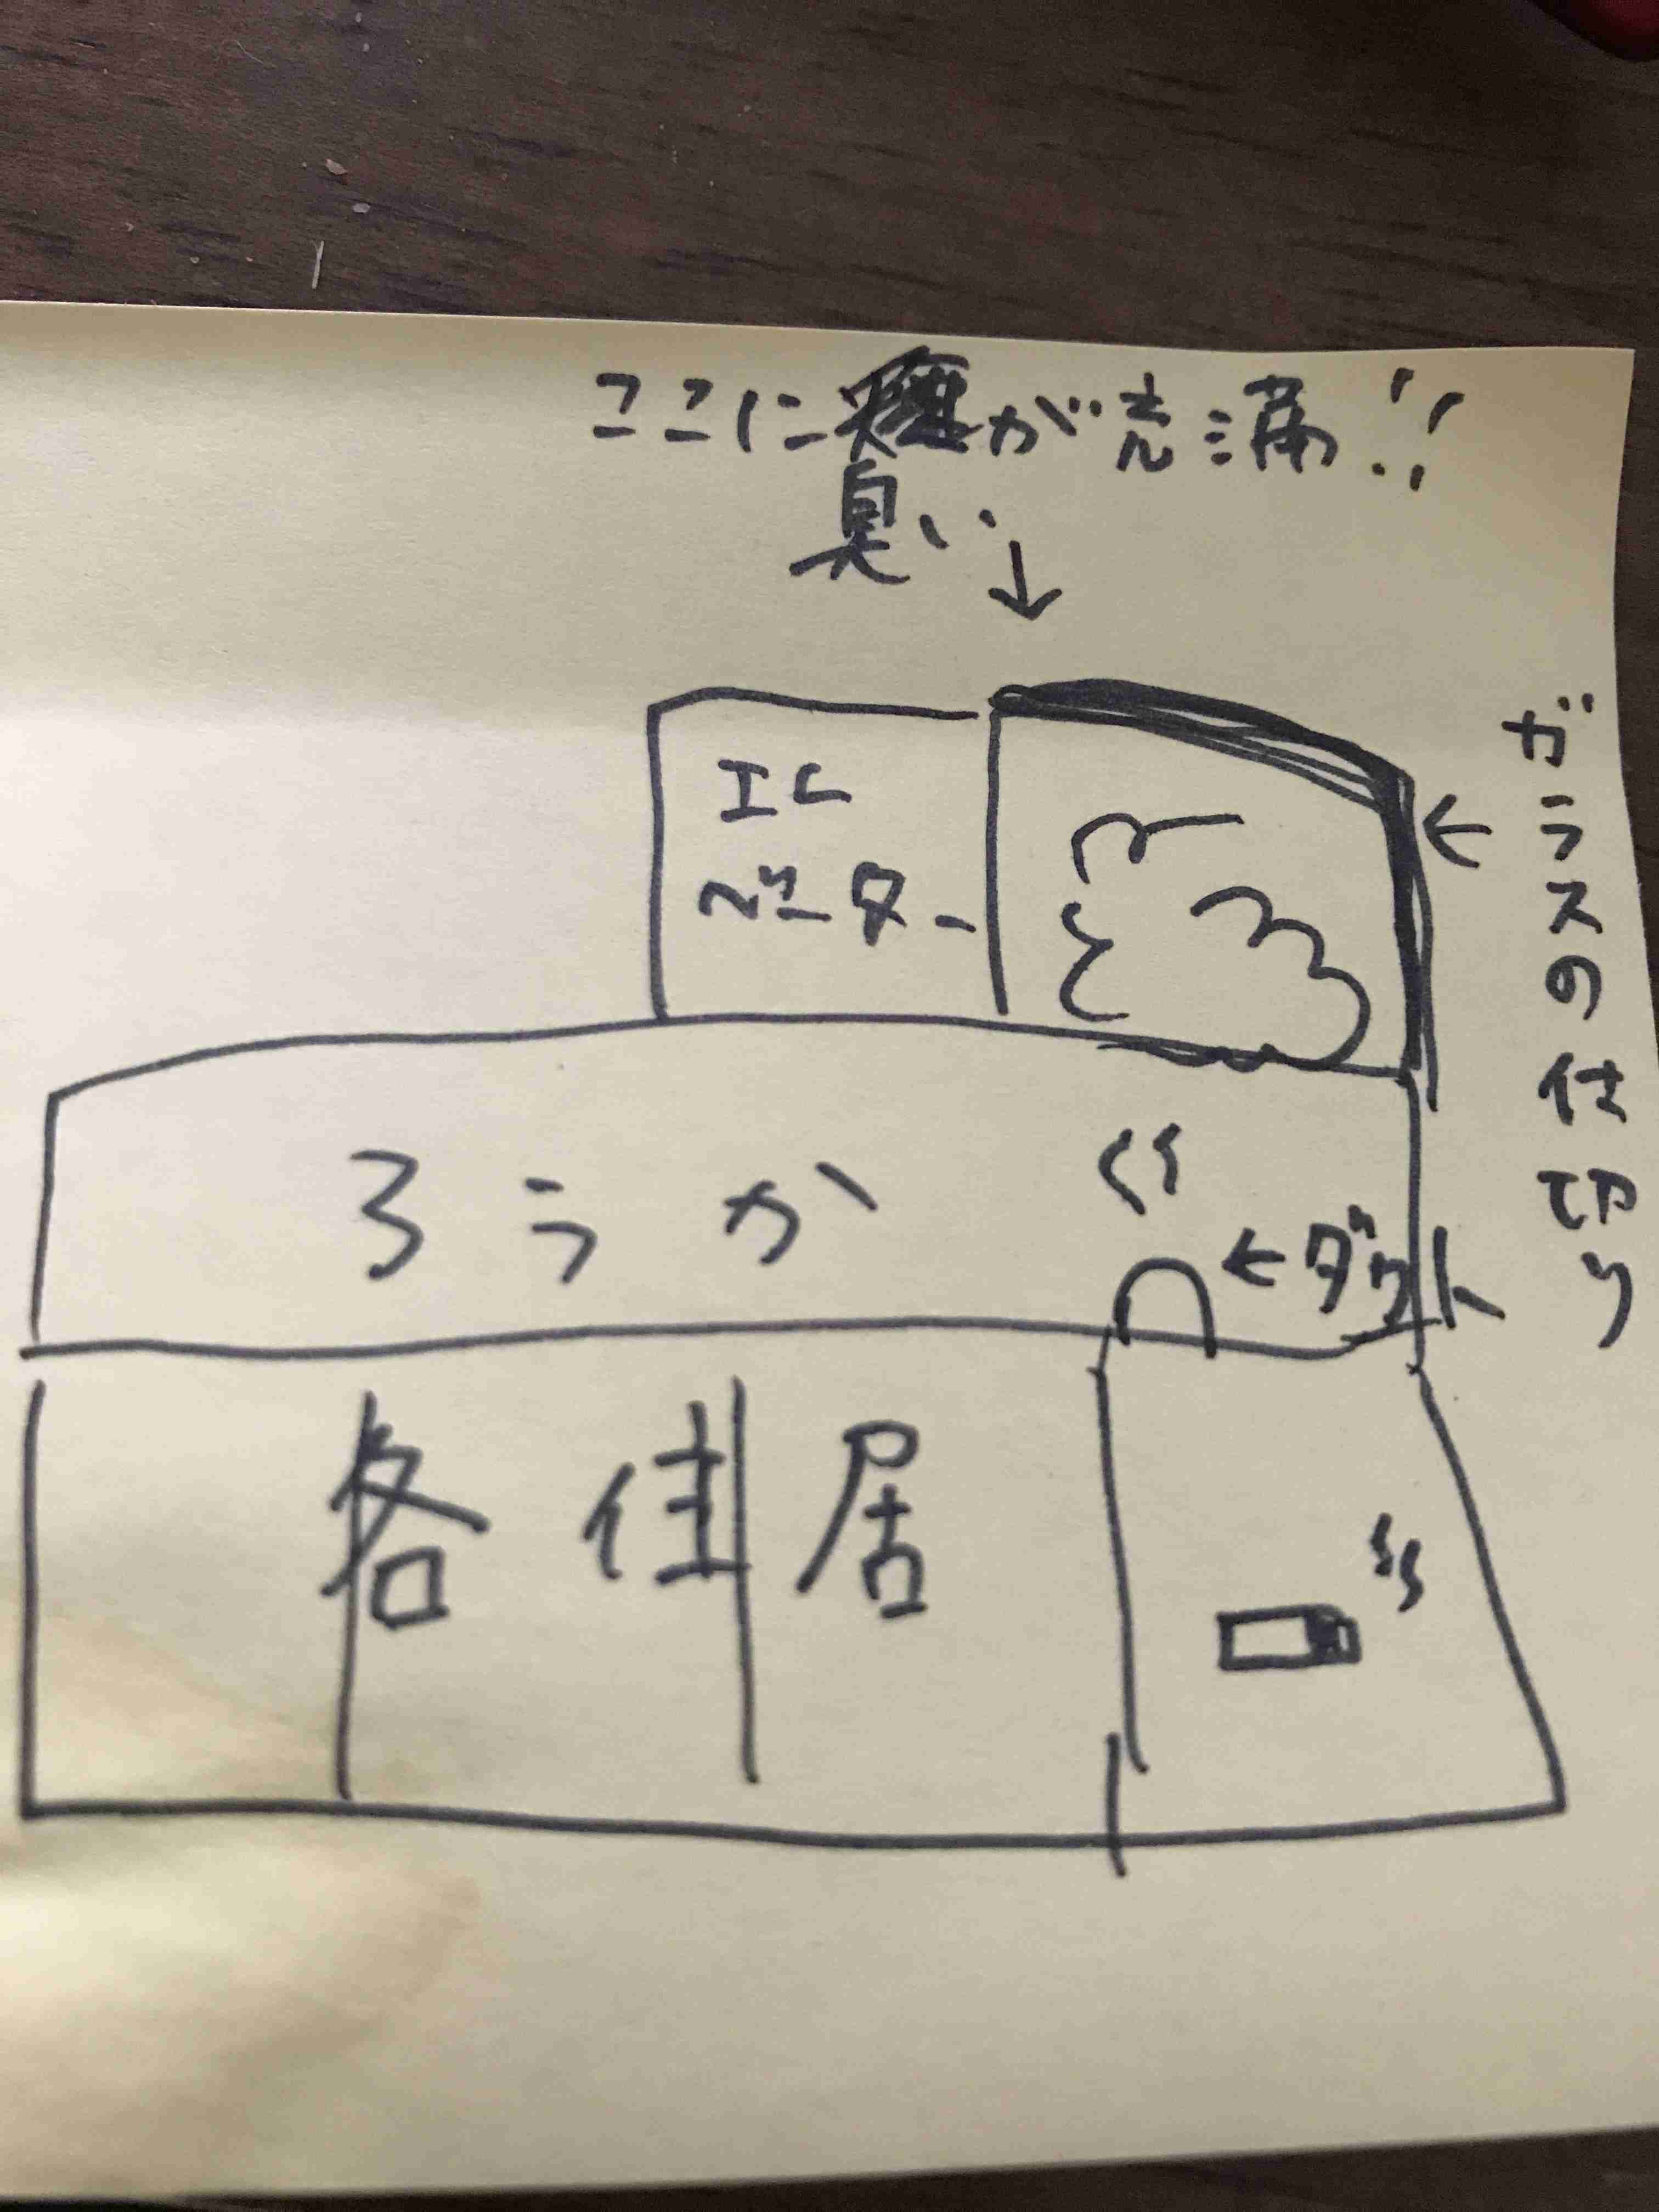 ここに煙が充満!!
臭い↓
ガラスの仕切り
←
エレ
ベーター
ろうか
←ダクト
各住居